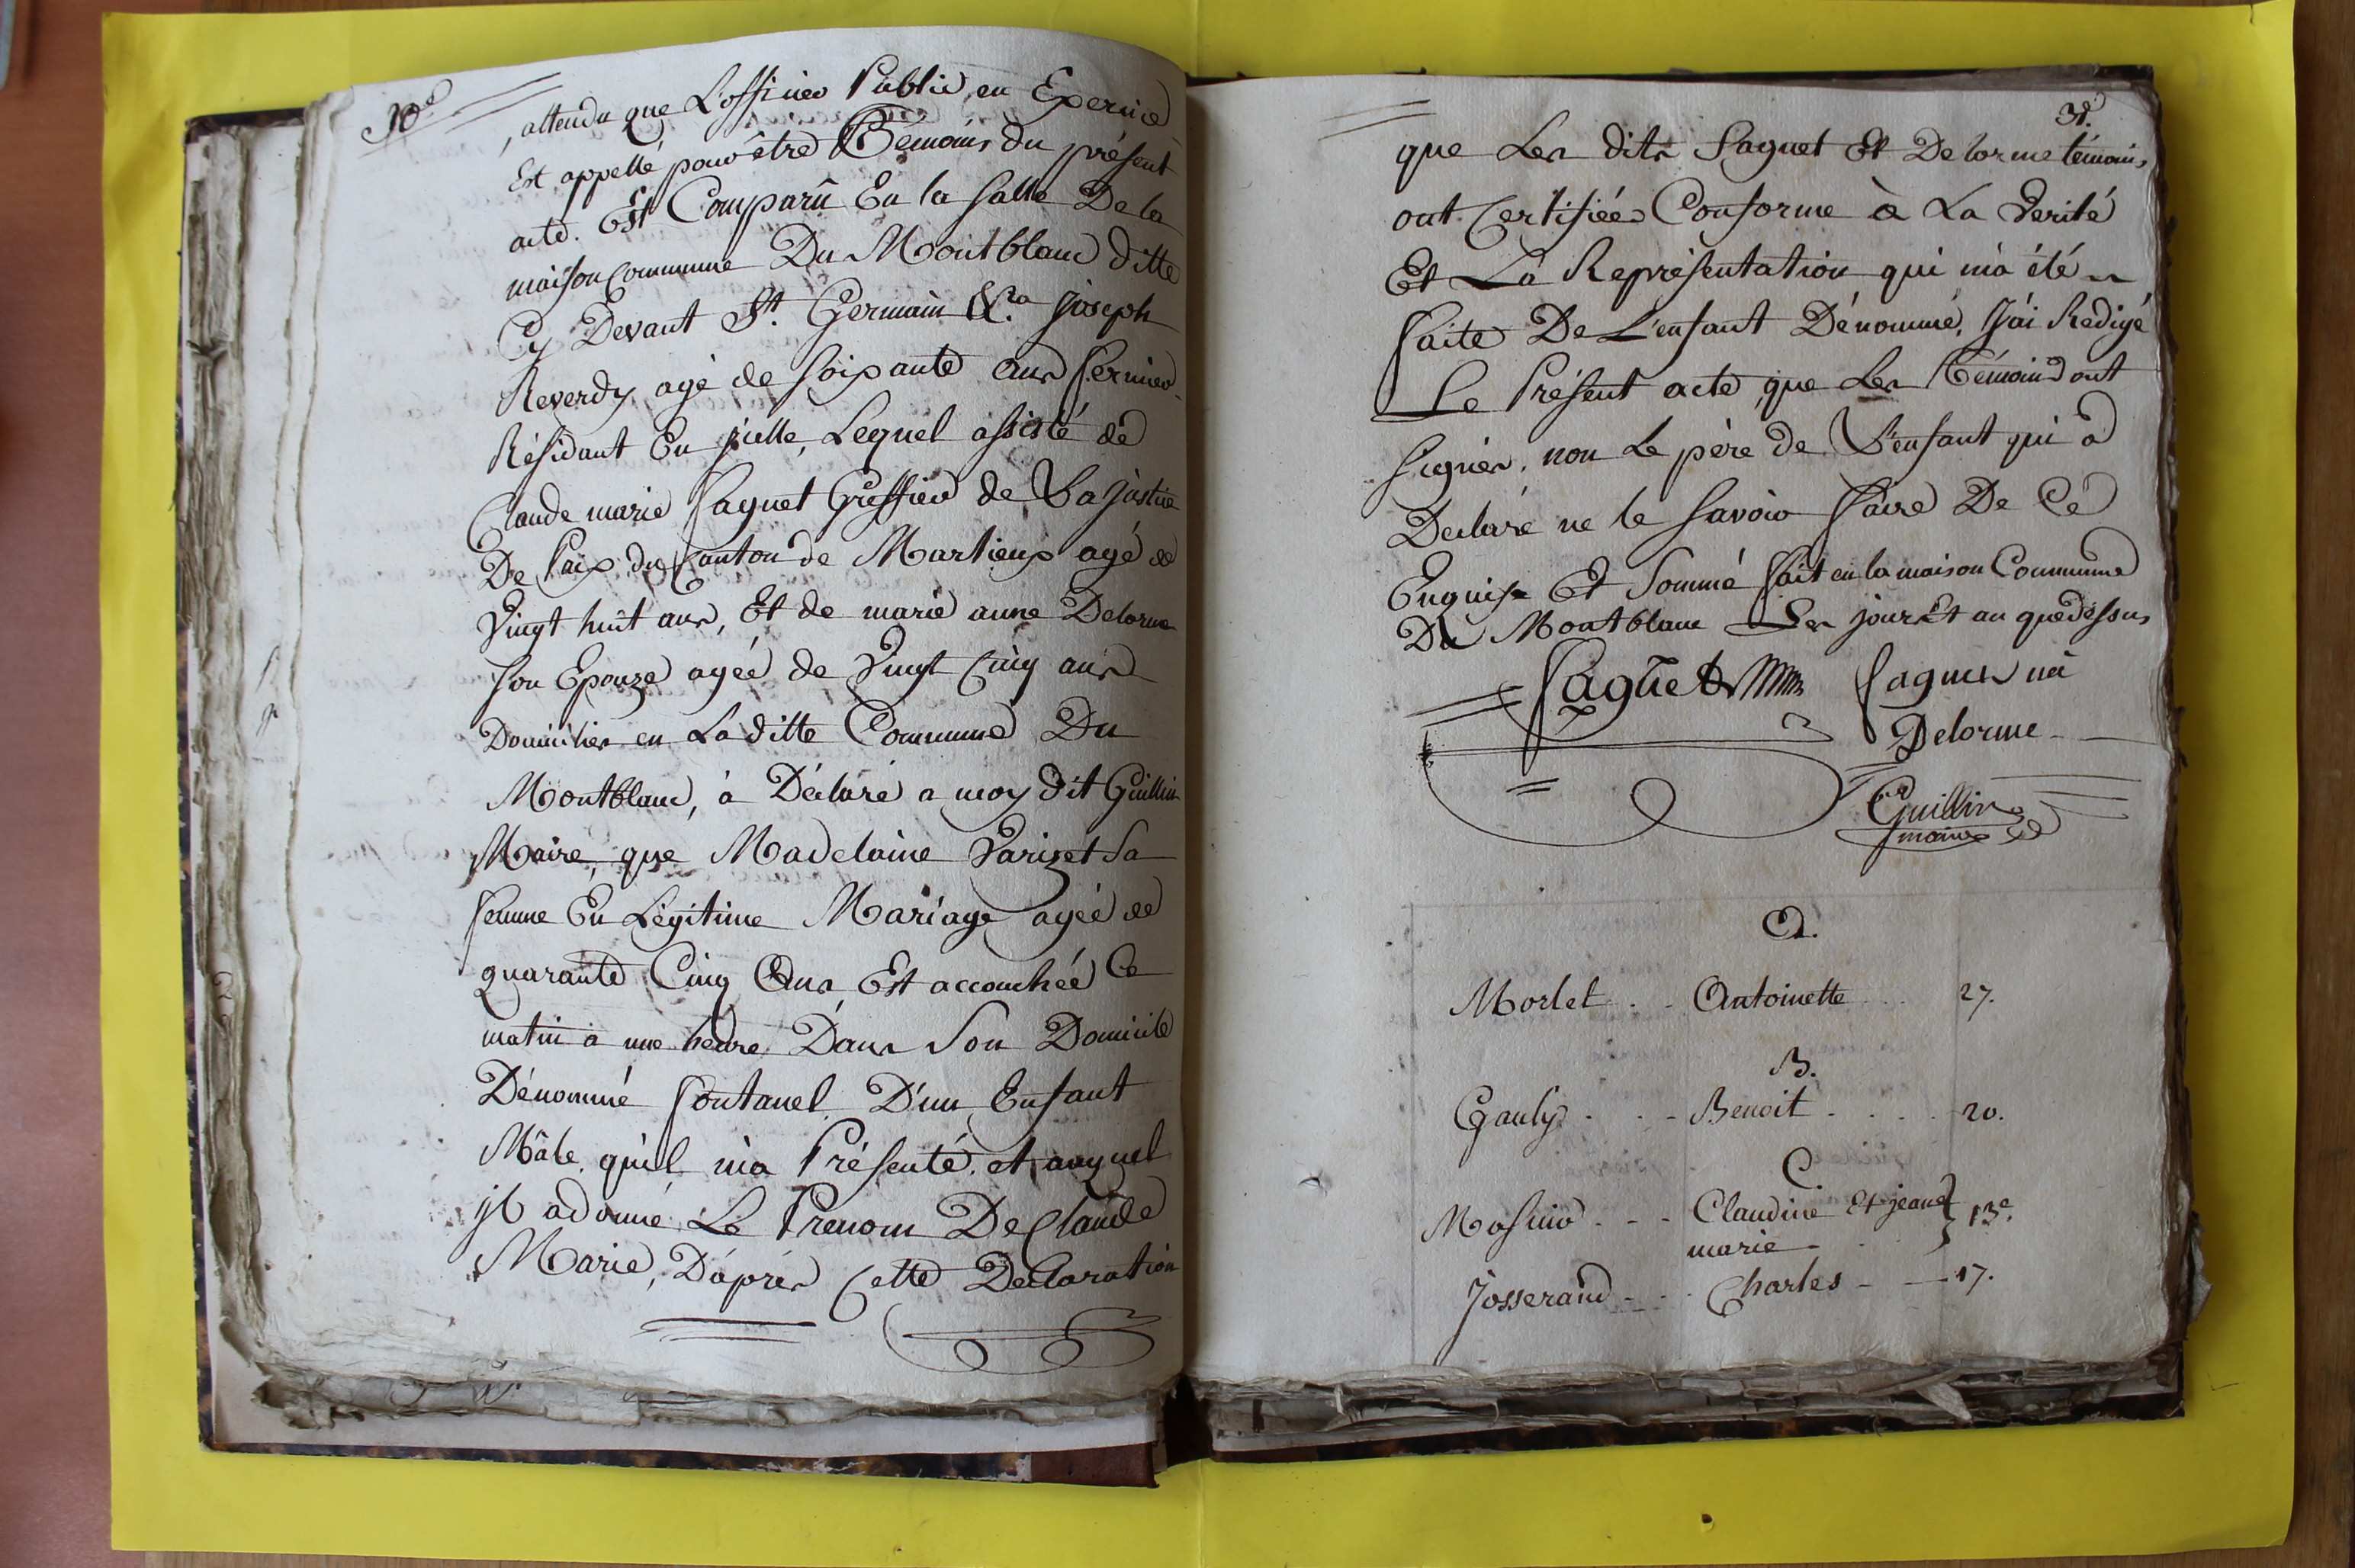 30e
, attendu que L'officier Public en Exercice
Est appellé pour être Témoins du présent
acte. Est Comparû En la salle De la
maison Commune Du Montblanc ditte
Cy Devant St. Germain &.a Joseph
Reverdy agé de soixante ans fermier
Résidant En icelle, Lequel assisté de
Claude marie Saguet Greffier de La justice
De Paix du Canton de Martieux agé de
Vingt huit ans, Et de marie anne Delorme
son Epouze agée de Vingt Cinq ans
Domicilies en La ditte Commune Du
Montblanc, à Déclaré a moy dit Guillin
Maire, que Madelaine Parizet sa
femme En Légitime Mariage agée de
quarante Cinq Ans Est accouchée Ce
matin à une heure Dans Son Domicile
Dénommé fontanel D'un Enfant
Mâle, qu'il m'a Présenté, et auquel
jl a donné Le Prenom De Claude
Marie, D'après Cette Declaration
31e
que Les dits Saguet Et Delorme témoins
ont Certifiée Conforme à La Verité
Et La Représentation qui m'a été
faite De L'enfant Dénommé, J'ai Redigé
Le Présent acte, que Les Témoins ont
signés, non Le père de L'enfant qui à
Déclaré ne le savoir faire De Ce
Enquis Et Sommé fait en la maison Commune
Du Montblanc Les jour Et an que dessus
Saguet Saguet née
Delorme
Guillin
maire
A.
Morlet . . Antoinette . . 27.
B.
Gauly . . - Benoit . . . . 20.
C.
Claudine Et jeane
Mosnier . - - marie . } 13e.
Josserand - . . Charles - - 17.